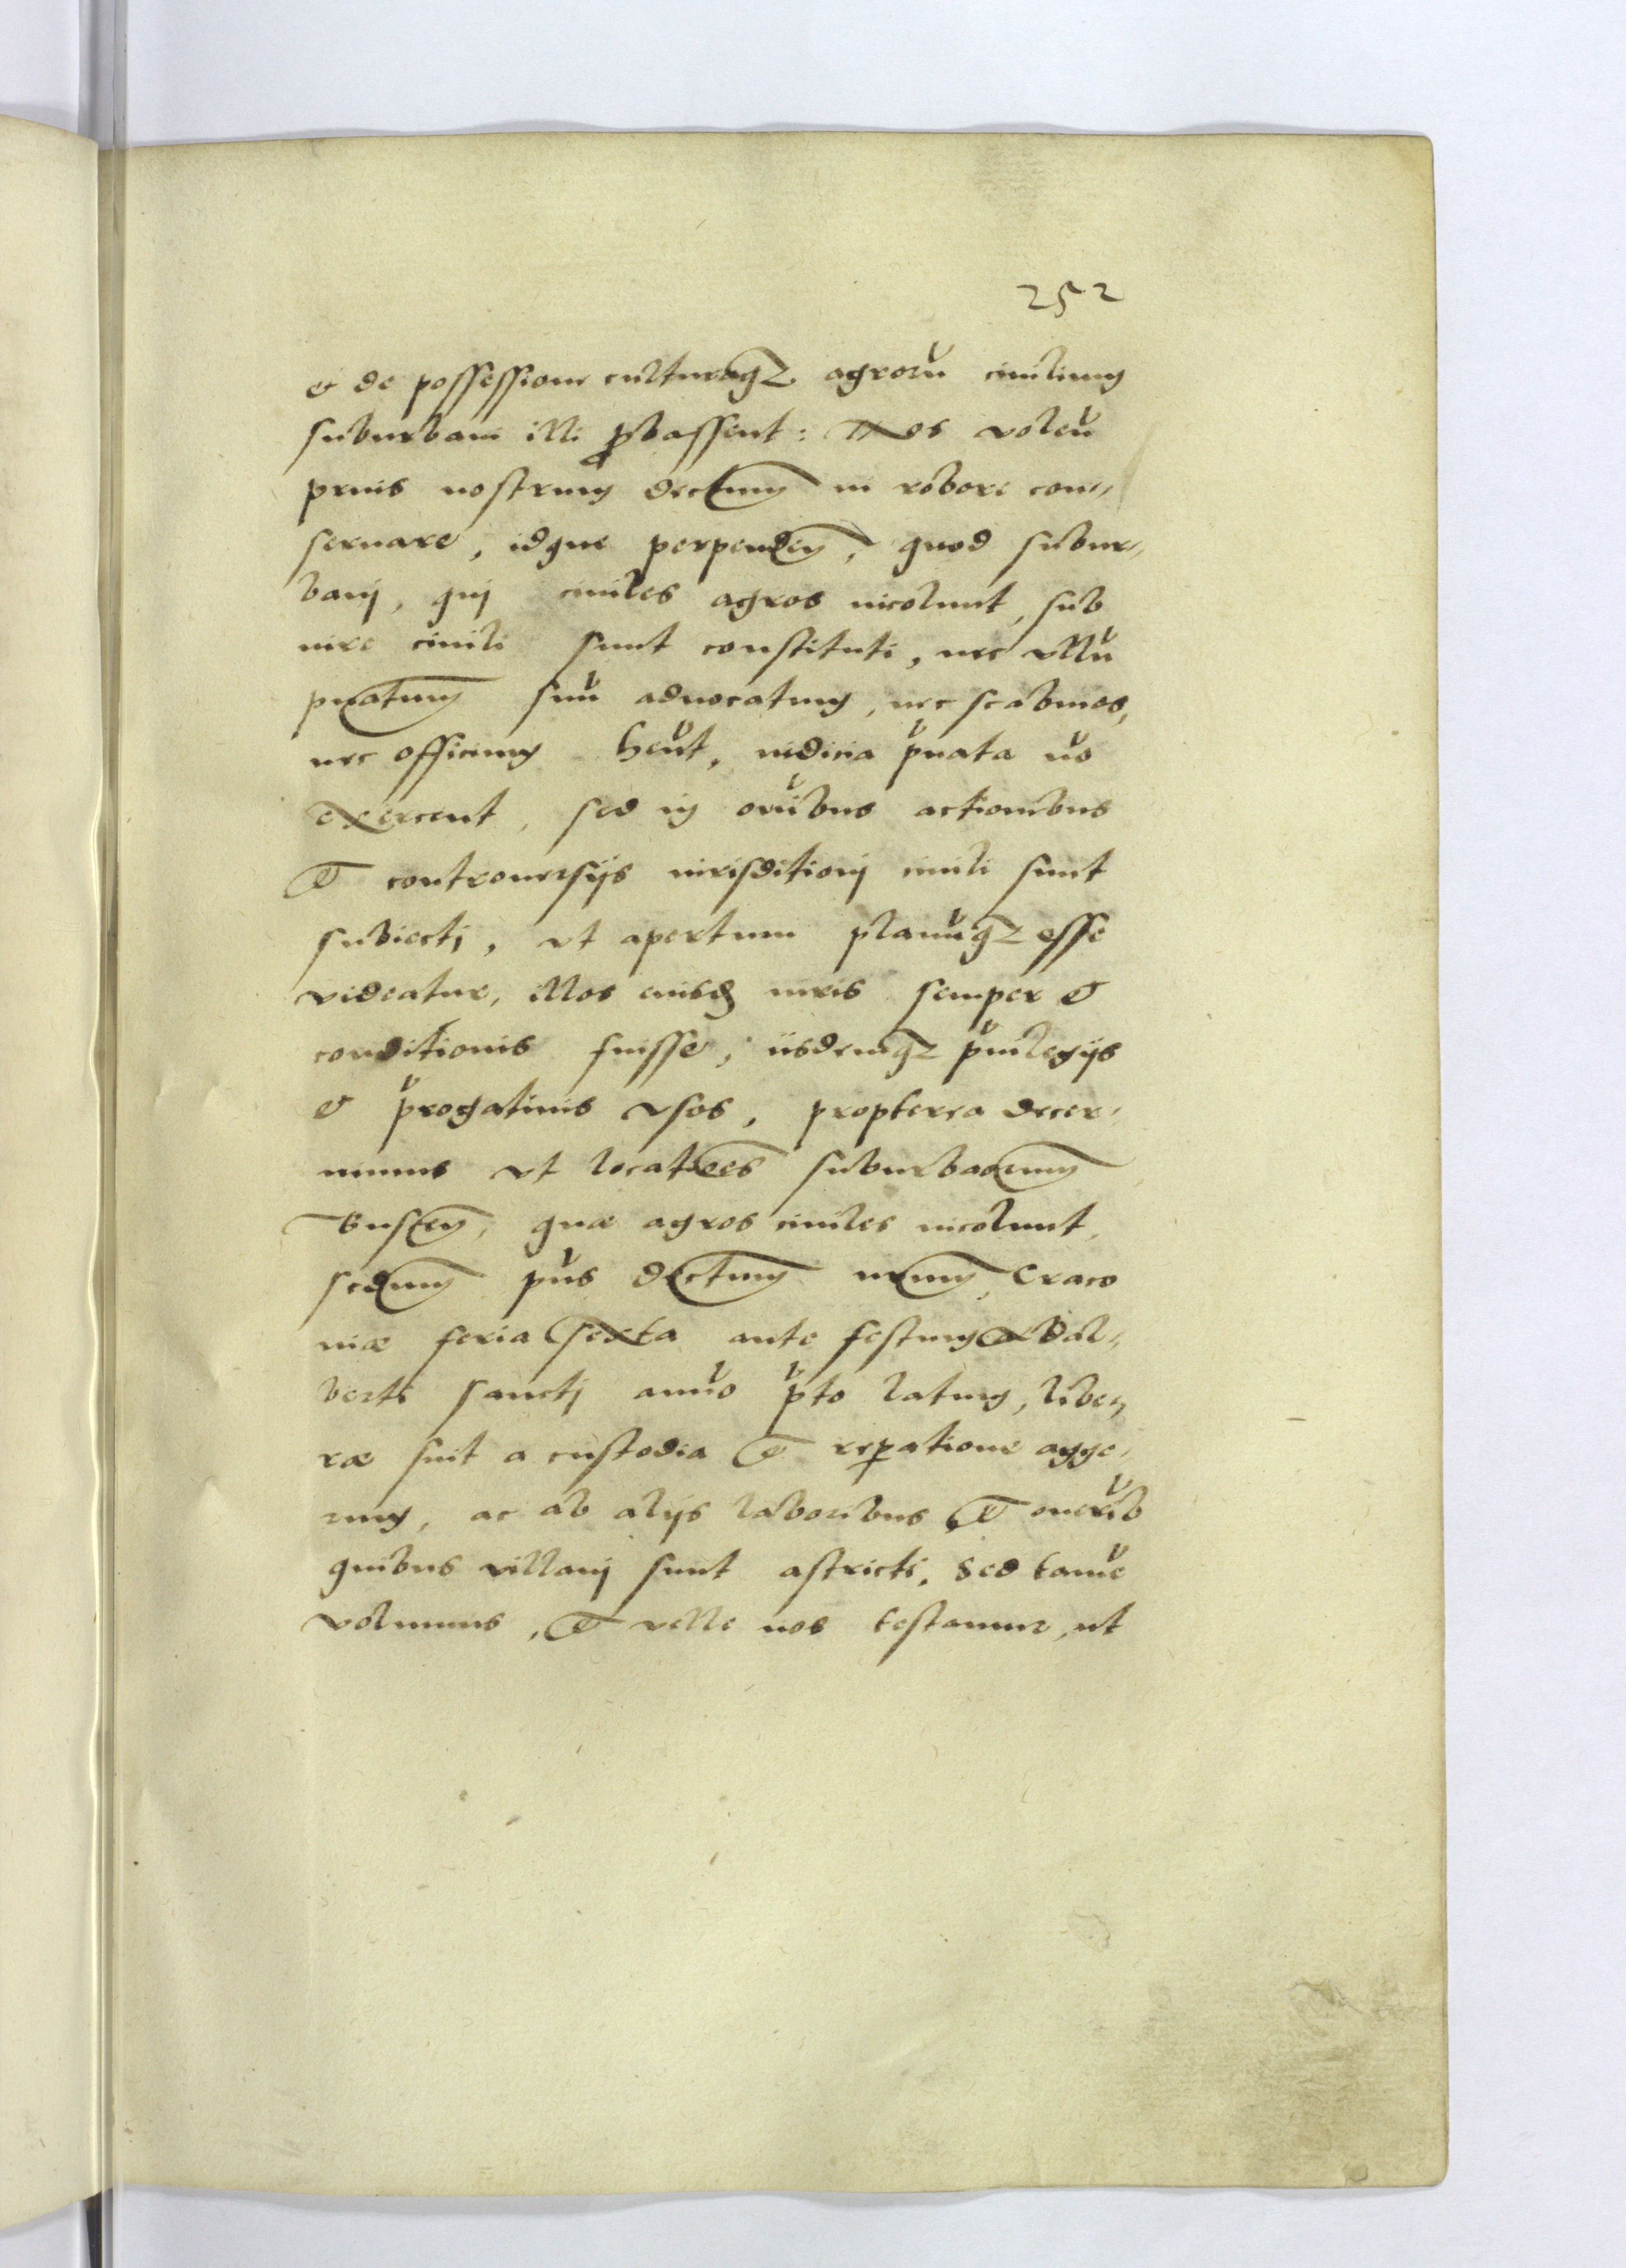 252
& de possessione culturaq₃ agrorũ ciuilium
suburbani illi ꝓbassent: Nos volen̄
prius nostrum decretum in robore con„
seruare, idque perpenden, quod subur„
banj, quj ciuiles agros incolunt, sub
iure ciuili sunt constituti, nec vllũ
priuatum suũ aduocatum, nec scabinos,
nec officium hen̄t, iudicia p̃uata nõ
exercent, sed in om̃ibus actionibus
& controuersijs iurisditionj ciuili sunt
subiectj, vt apertum planũq₃ esse
videatur, illos eiusd iuris semper &
conditionis fuisse, iisdemq₃ p̃uilegijs
& p̃rogatiuis vsos, propterea decer„
nimus vt locatões suburbanorum
Buscen, quæ agros ciuiles incolunt,
scdum p̃us decretum nrum, Craco
niæ feria sexta ante festum Adal„
berti sanctj anño p̃to latum, libe„
ræ sint a custodia & reꝑatione agge„
rum, ac ab alijs laboribus & onerib̃
quibus villanj sunt astricti. Sed tamẽ
volumus, & velle nos testamur, ut